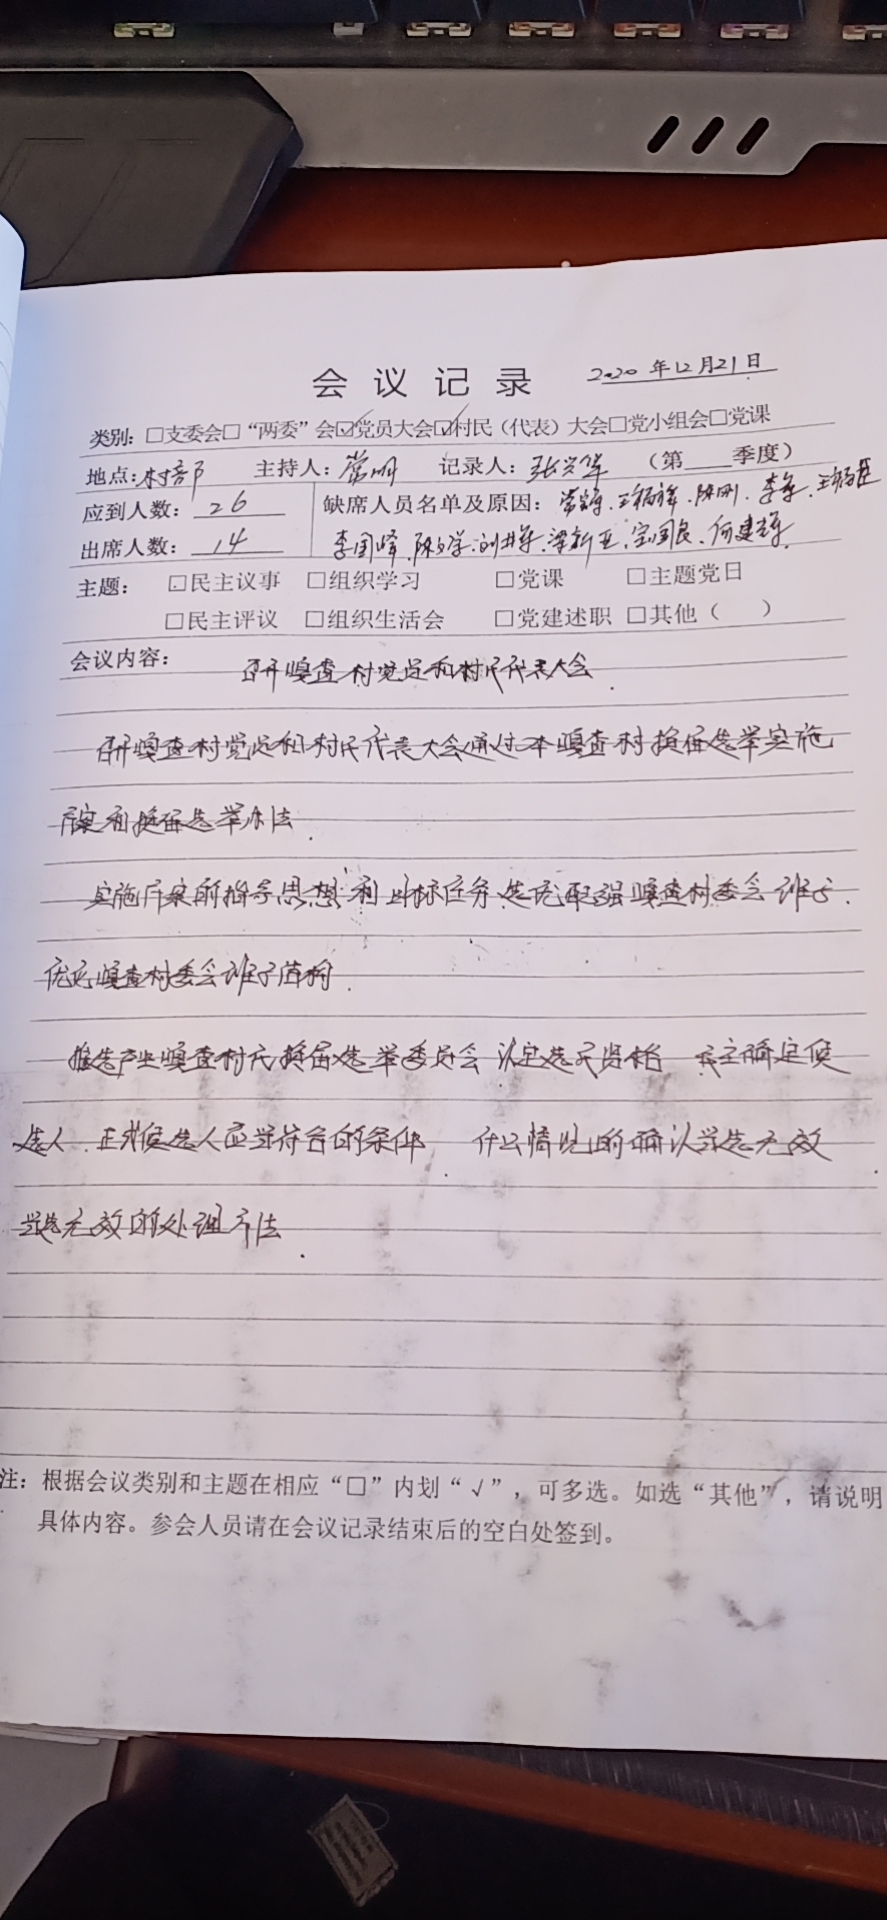 会议记录 2020年12月21日
类别：□支委会□“两委”会☑党员大会☑村民（代表）大会□党小组会□党课
地点：村部 主持人：常明 记录人：张兴华 （第 季度）
应到人数：26 缺席人员名单及原因：王福祥、陈刚、李军、王福臣
出席人数：14 李国峰、陈文学、刘井军、梁新亚、宝国良、何建辉
主题： □民主议事 □组织学习 □党课 □主题党日
□民主评议 □组织生活会 □党建述职 □其他（ ）
会议内容： 召开嘎查村党员和村民代表大会.
召开嘎查村党员和村民代表大会通过本嘎查村换届选举实施
方案和换届选举办法.
实施方案的指导思想和目标任务 选优配强嘎查村委会班子.
优化嘎查村委会班子结构.
推选产生嘎查村民换届选举委员会 认定选民资格 民主确定候
选人.正式候选人应当符合的条件. 什么情况的确认当选无效
当选无效的处理方法.
注：根据会议类别和主题在相应“□”内划“√”，可多选。如选“其他”，请说明
具体内容。参会人员请在会议记录结束后的空白处签到。